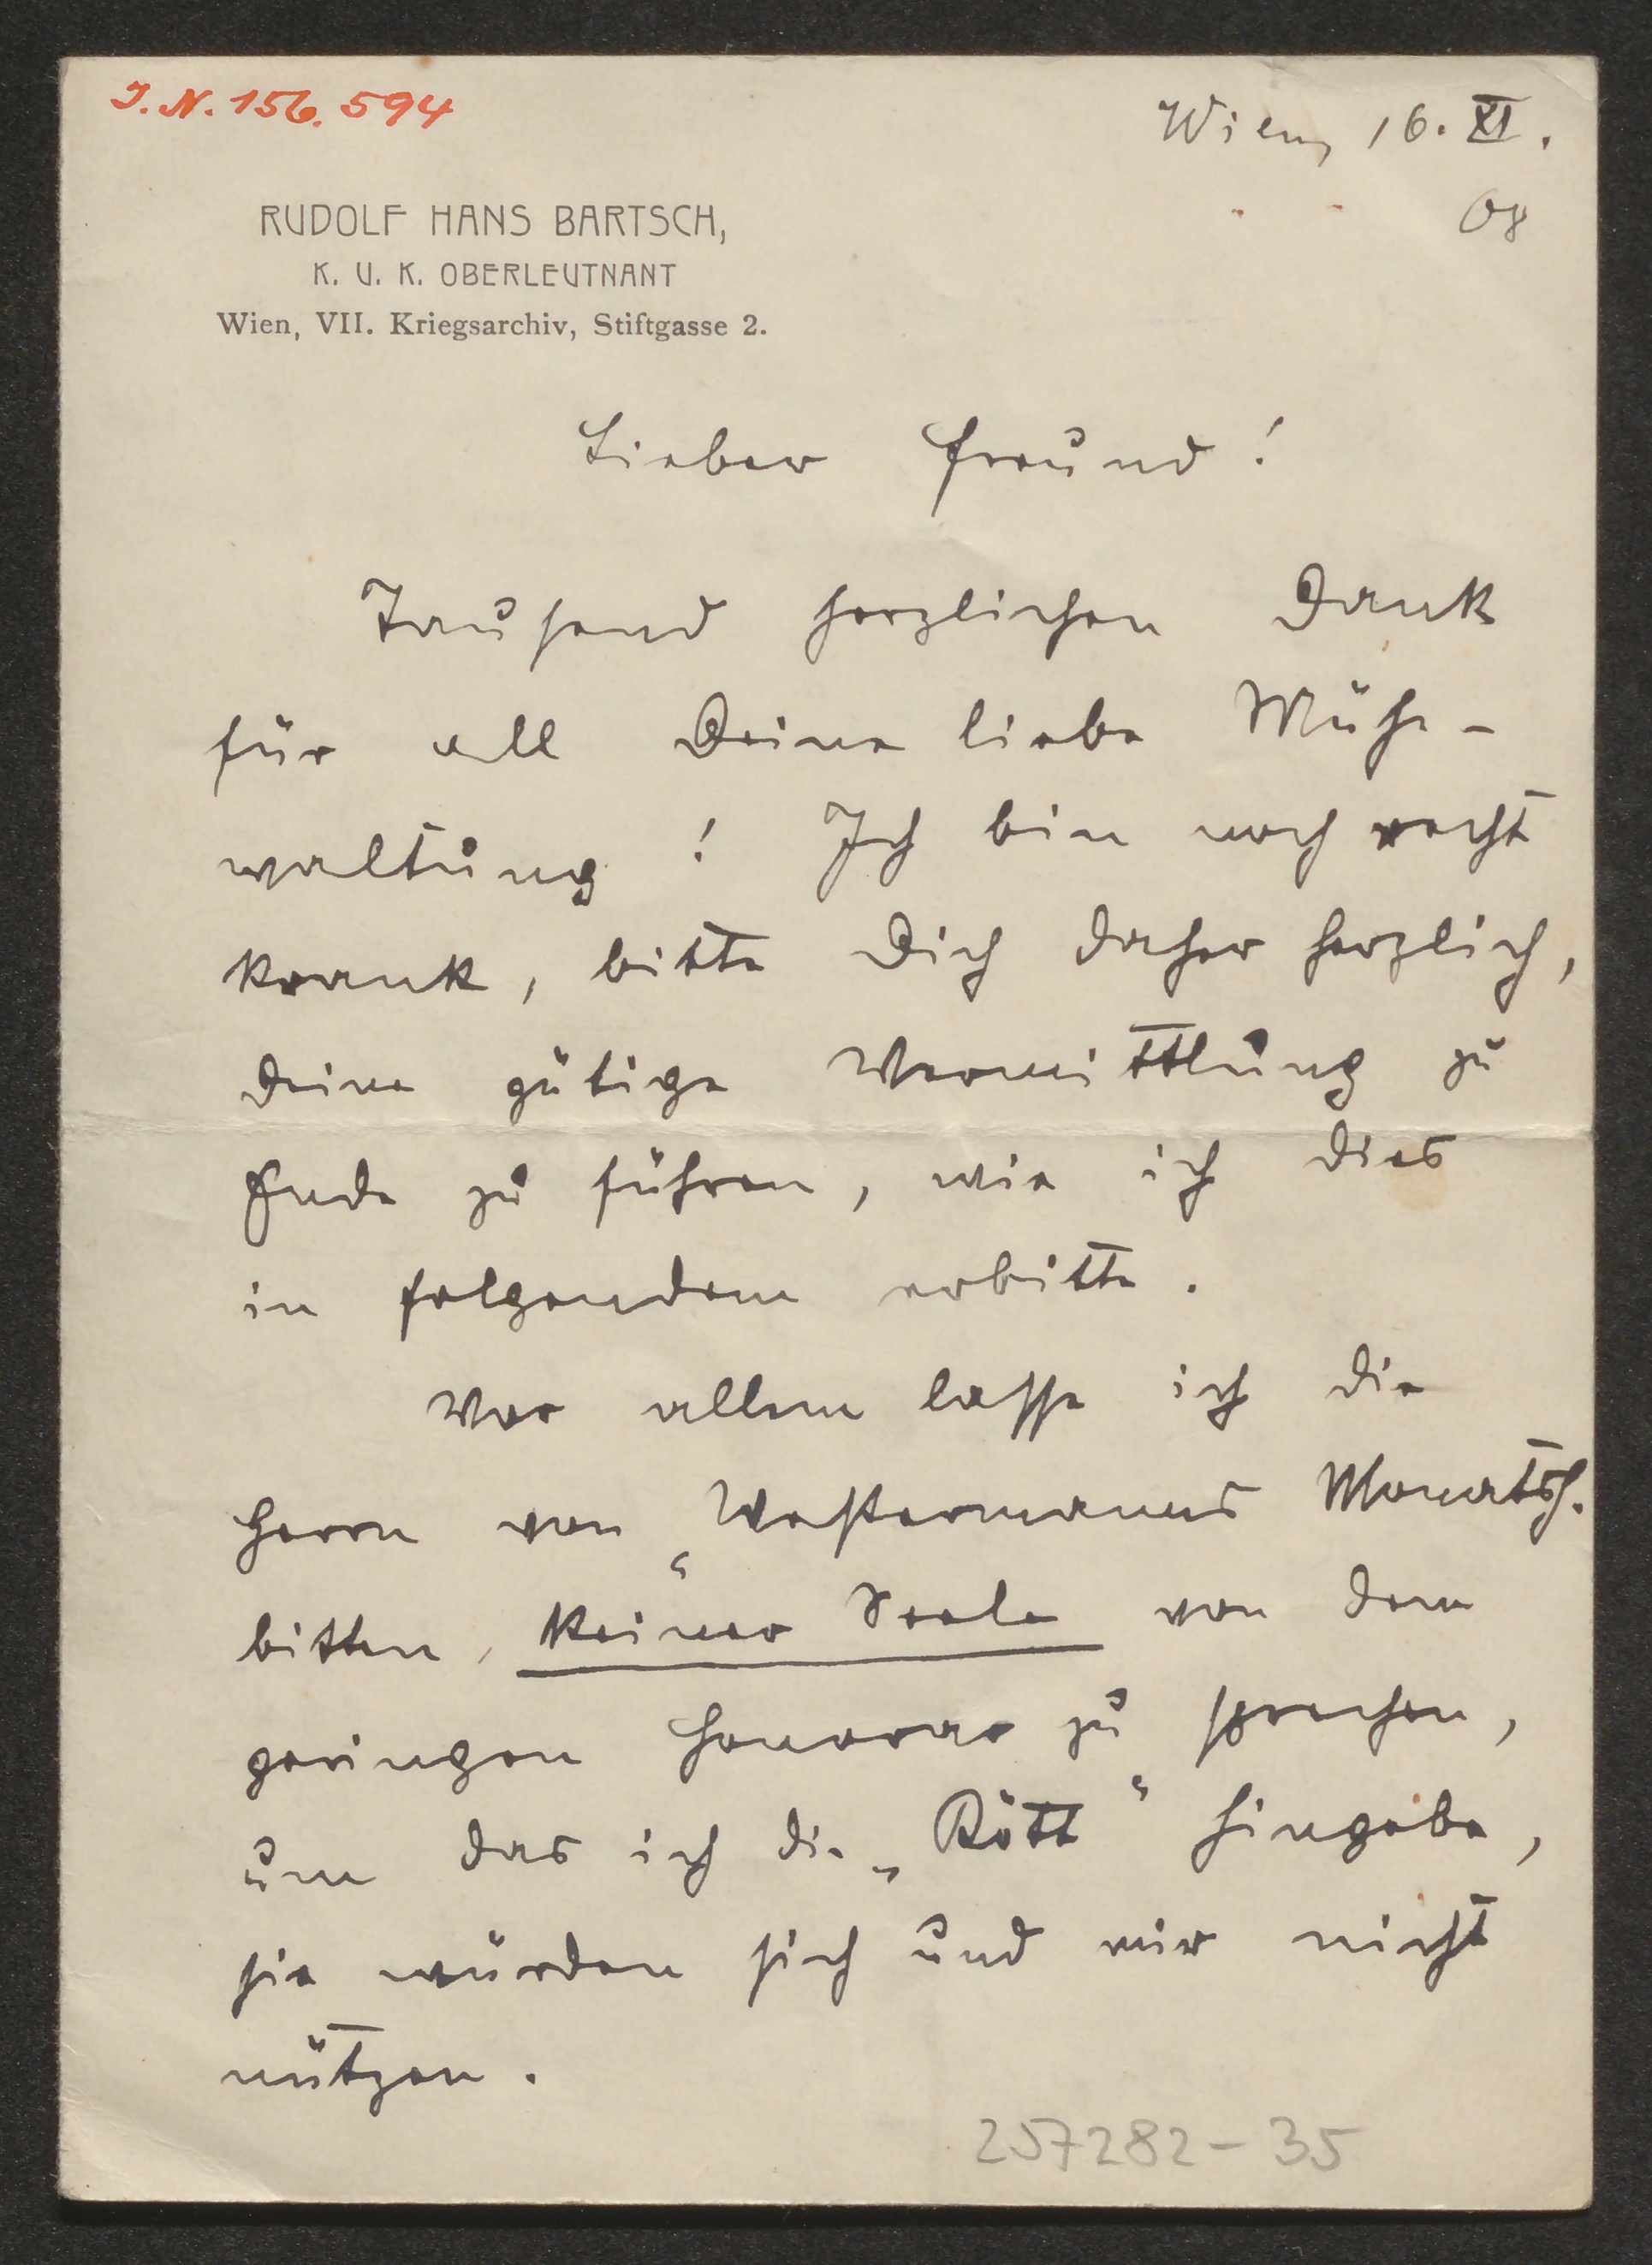 I. N. 156.594
Wien, 16. XI.
08
RUDOLF HANS BARTSCH,
K. U. K. OBERLEUTNANT
Wien, VII. Kriegsarchiv, Stiftgasse 2.
Lieber Freund!
Tausend herzlichen Dank
für all Deine liebe Mühe-
waltung! Ich bin noch recht
krank, bitte Dich daher herzlich,
Deine gütige Vermittlung zu
Ende zu führen, wie ich dies
in folgendem erbitte.
Vor allem lasse ich die
Herrn von „Westermanns Monatsh.
bitten, keiner Seele von dem
geringen Honorar zu sprechen,
um das ich die „Rött“ hingebe,
sie würden sich und mir nicht
nützen.
257282-35